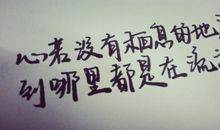 心若没有栖息的地
到哪里都是在流